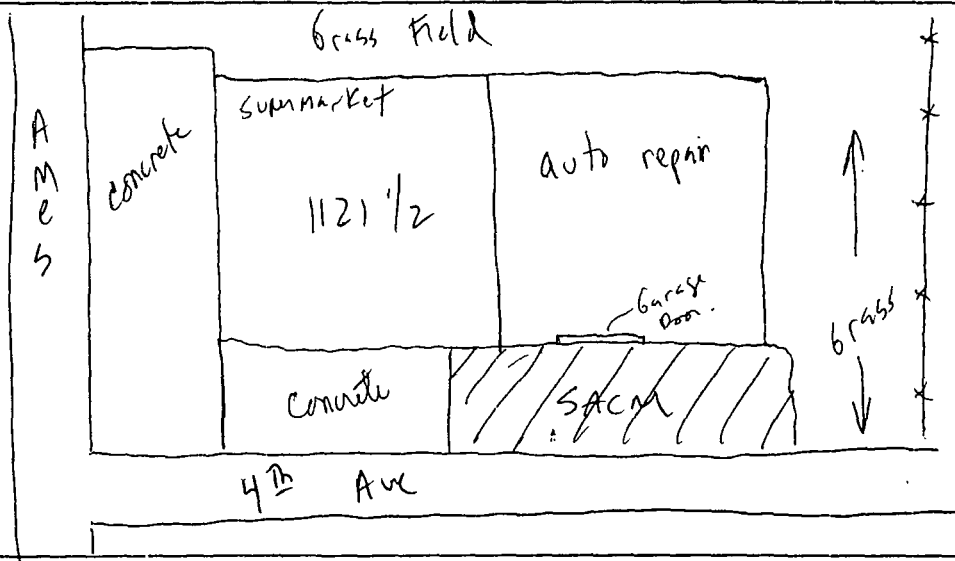 Grass Field
AMes
concrete
supermarket
1121 1/2
auto repair
Garage
Door.
Grass
concrete
SACM
4th Ave